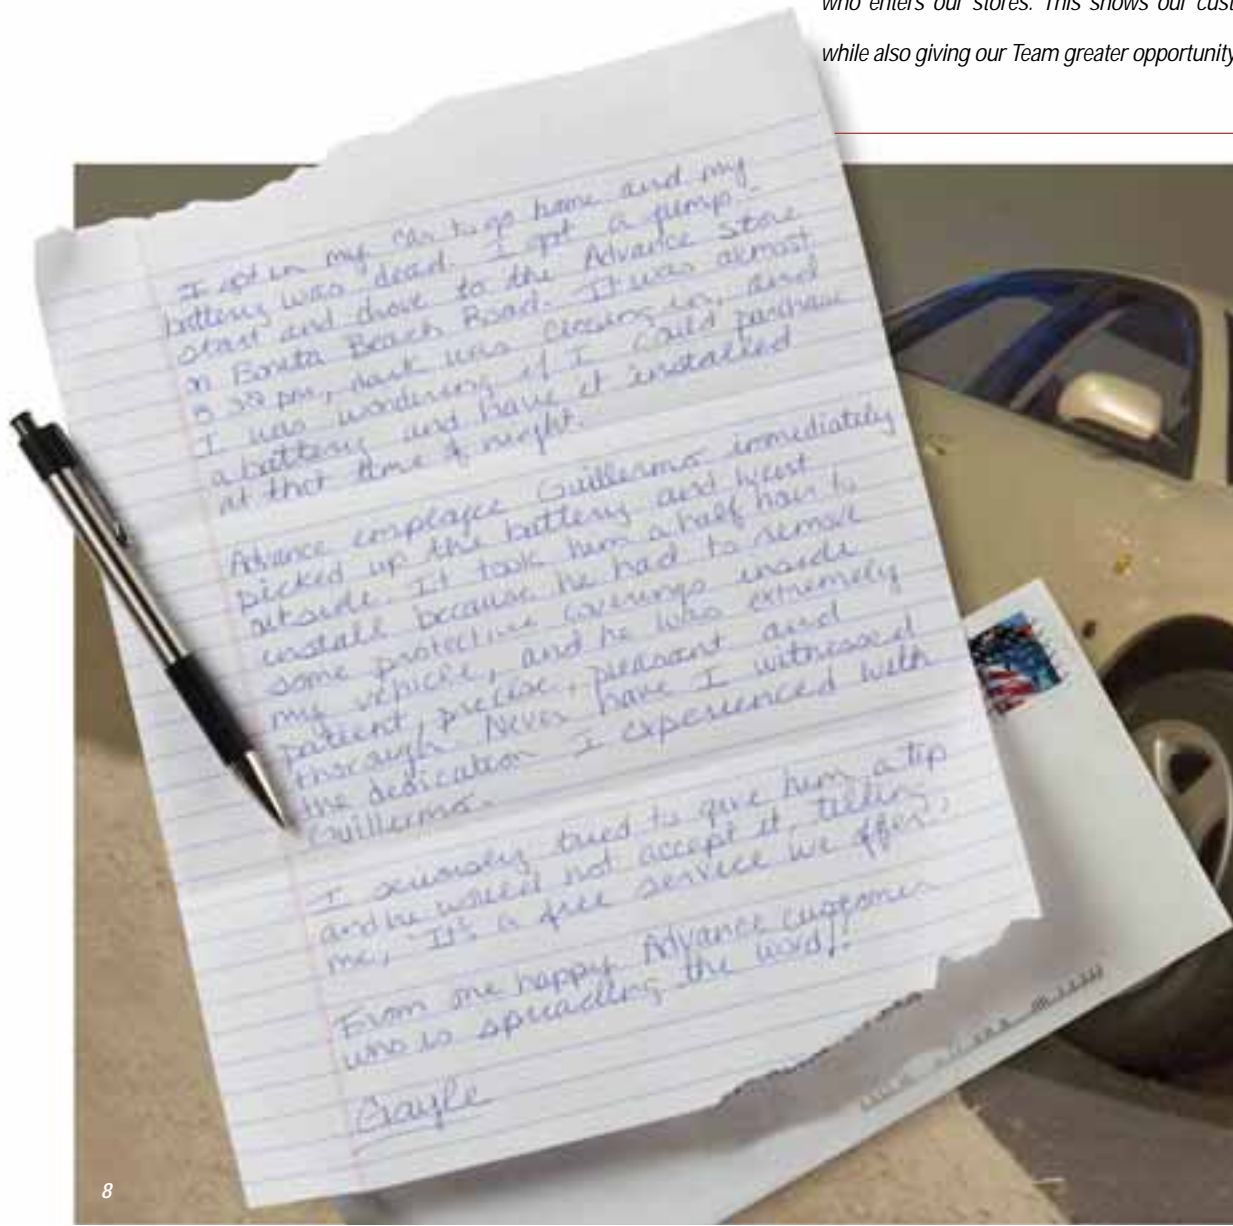 who enters our stores. This shows our cust
while also giving our Team greater opportunity
I got in my car to go home and my
battery was dead. I got a jump-
start and drove to the Advance store
on Bonita Beach Road. It was almost
8:30 pm, dark was closing in, and
I was wondering if I could purchase
a battery and have it installed
at that time of night.
Advance employee Guillermo immediately
picked up the battery and went
outside. It took him a half hour to
install because he had to remove
some protective coverings inside
my vehicle, and he was extremely
patient, precise, pleasant and
thorough. Never have I witnessed
the dedication I experienced with
Guillermo.
I seriously tried to give him a tip
and he would not accept it, telling
me, "It's a free service we offer."
From one happy Advance customer
who is spreading the word!!
Gayle
8